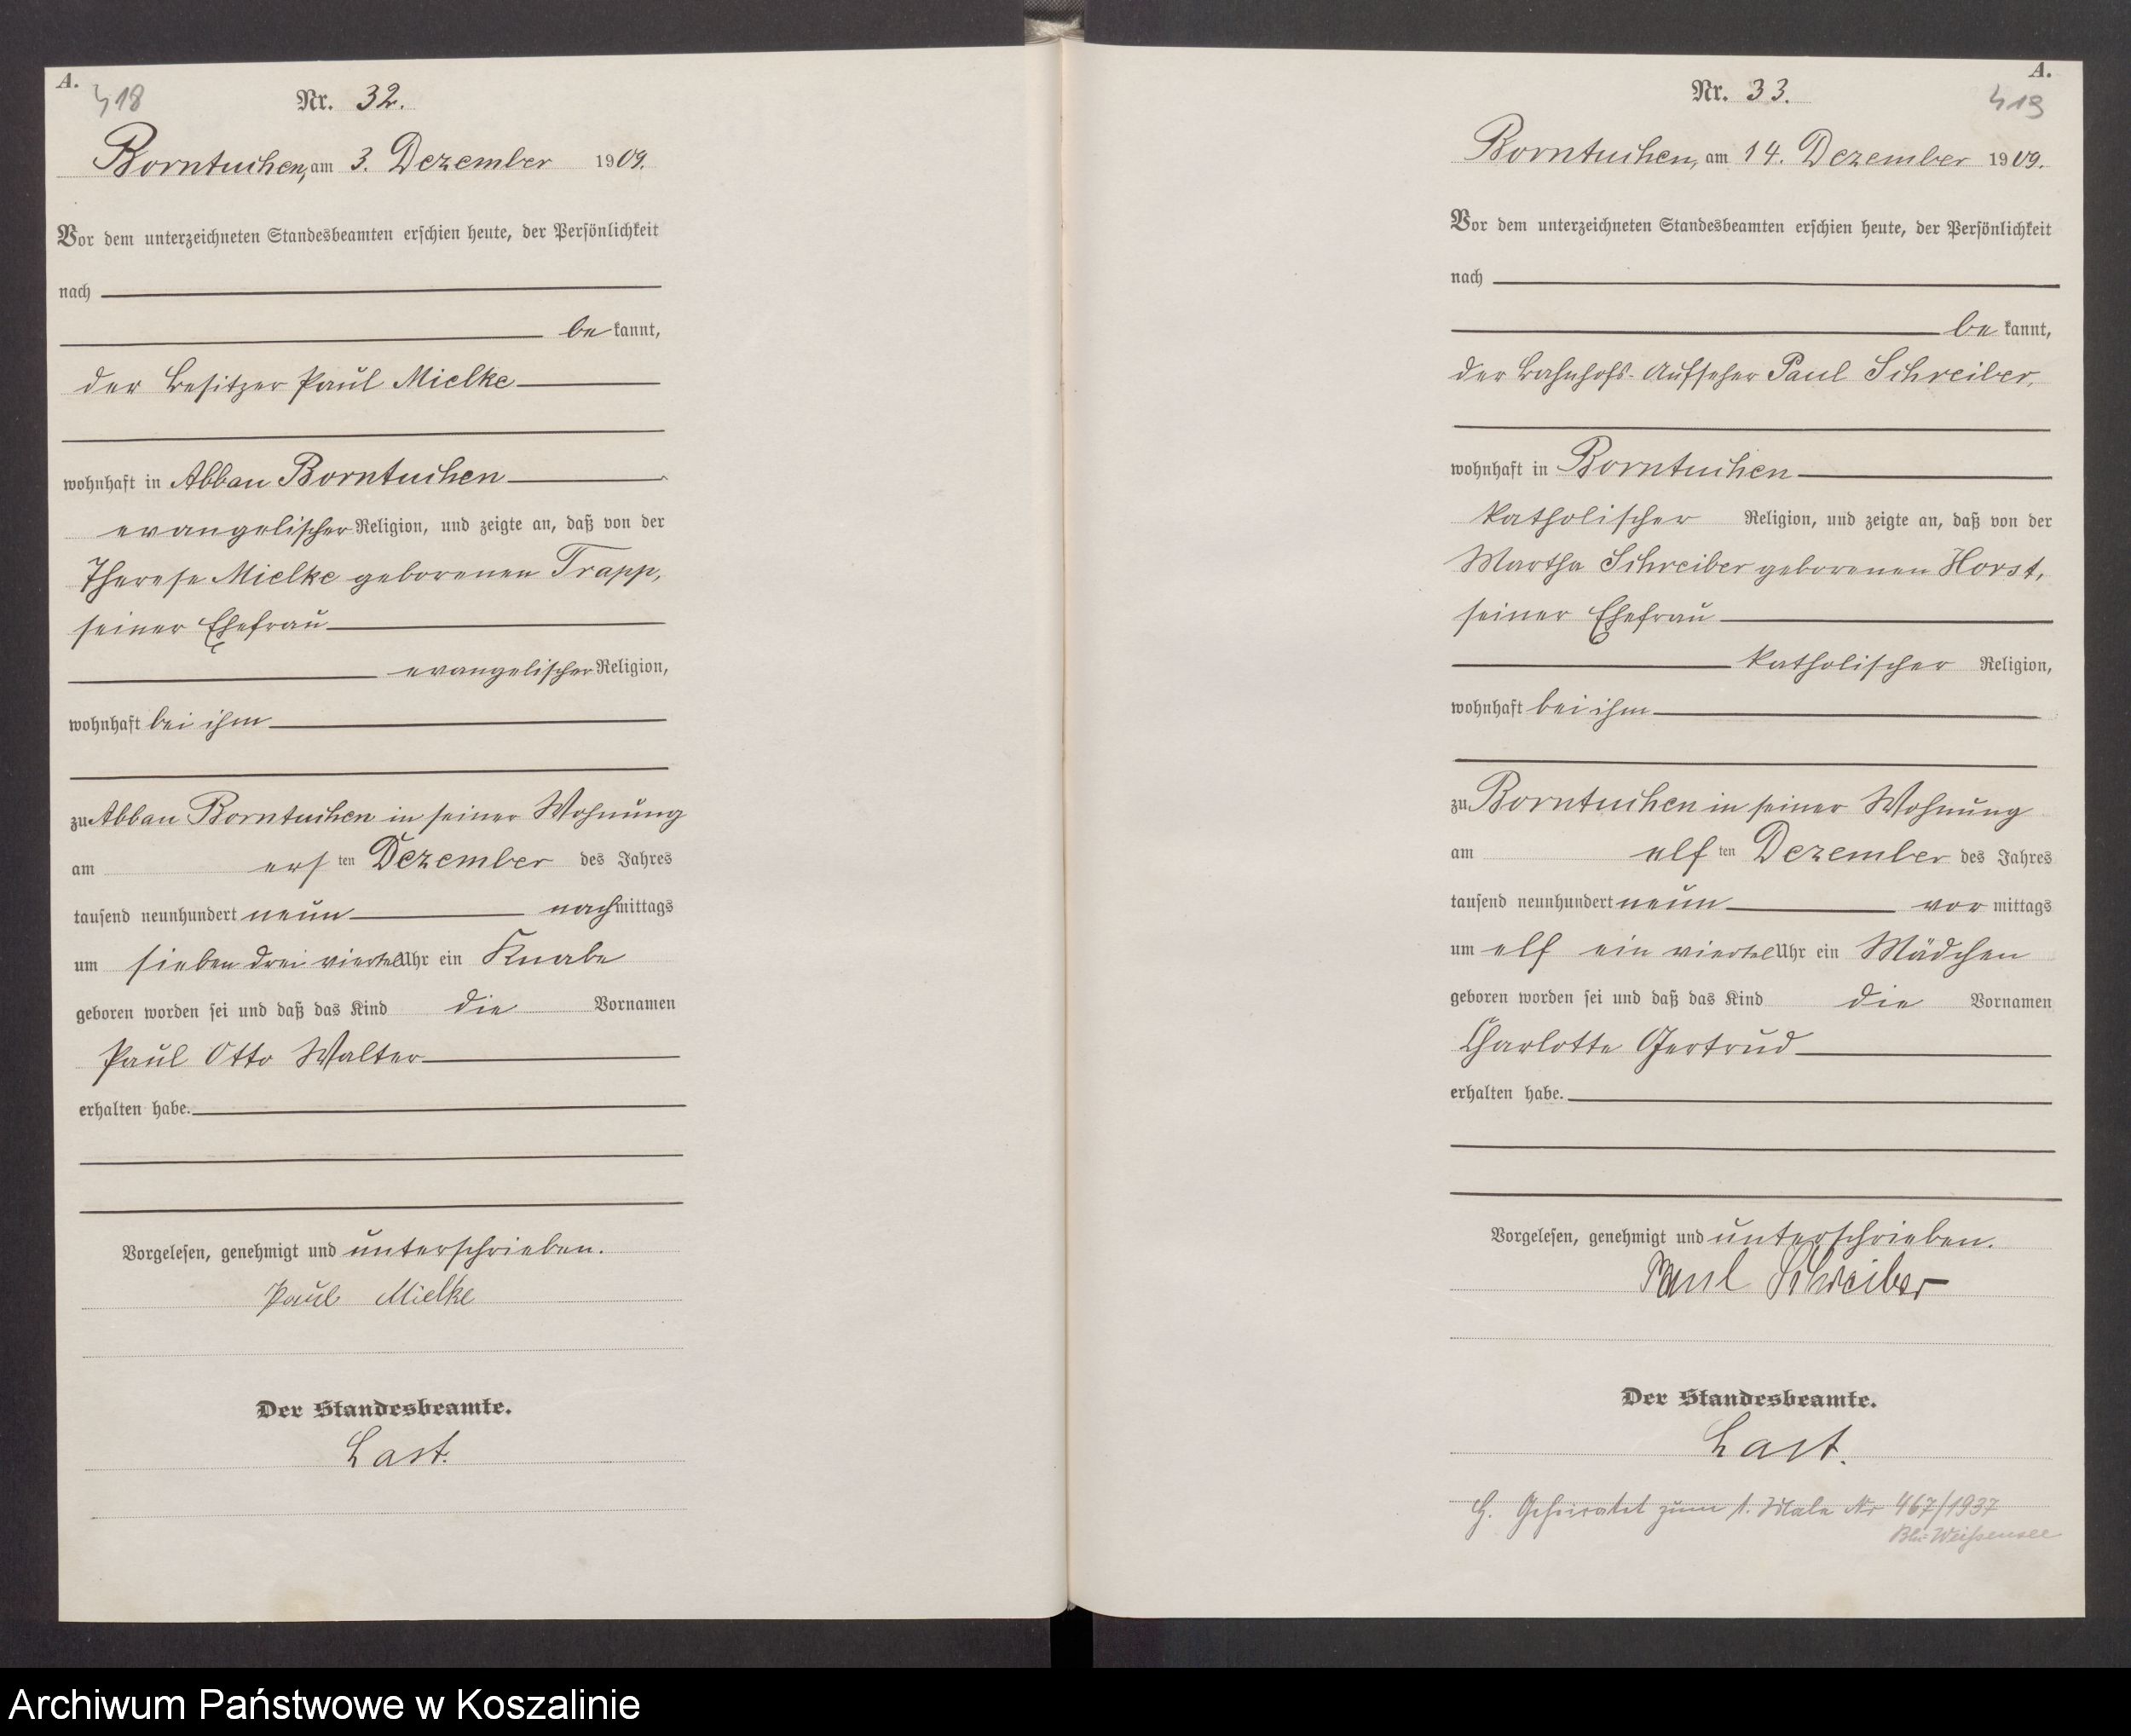 A.
418
Nr. 32.
Borntuchen, am 3. Dezember 1909.
Vor dem unterzeichneten Standesbeamten erschien heute, der Persönlichkeit
nach
be kannt,
der Besitzer Paul Mielke
wohnhaft in Abbau Borntuchen
evangelischer Religion, und zeigte an, daß von der
Therese Mielke geborenen Trapp,
seiner Ehefrau
evangelischer Religion,
wohnhaft bei ihm
zu Abbau Borntuchen in seiner Wohnung
am ers ten Dezember des Jahres
tausend neunhundert neun nachmittags
um sieben drei viertel Uhr ein Knabe
geboren worden sei und daß das Kind die Vornamen
Paul Otto Walter
erhalten habe.
Vorgelesen, genehmigt und unterschrieben.
Paul Mielke
Der Standesbeamte.
Last.
A.
419
Nr. 33.
Borntuchen, am 14. Dezember 1909.
Vor dem unterzeichneten Standesbeamten erschien heute, der Persönlichkeit
nach
be kannt,
der Bahnhofs-Aufseher Paul Schreiber,
wohnhaft in Borntuchen
katholischer Religion, und zeigte an, daß von der
Martha Schreiber geborenen Horst,
seiner Ehefrau
katholischer Religion,
wohnhaft bei ihm
zu Borntuchen in seiner Wohnung
am elf ten Dezember des Jahres
tausend neunhundert neun vor mittags
um elf ein viertel Uhr ein Mädchen
geboren worden sei und daß das Kind die Vornamen
Charlotte Gertrud
erhalten habe.
Vorgelesen, genehmigt und unterschrieben.
Paul Schreiber
Der Standesbeamte.
Last.
Geheiratet zum 1. Male Nr 467/1937
Bln-Weißensee
Archiwum Państwowe w Koszalinie